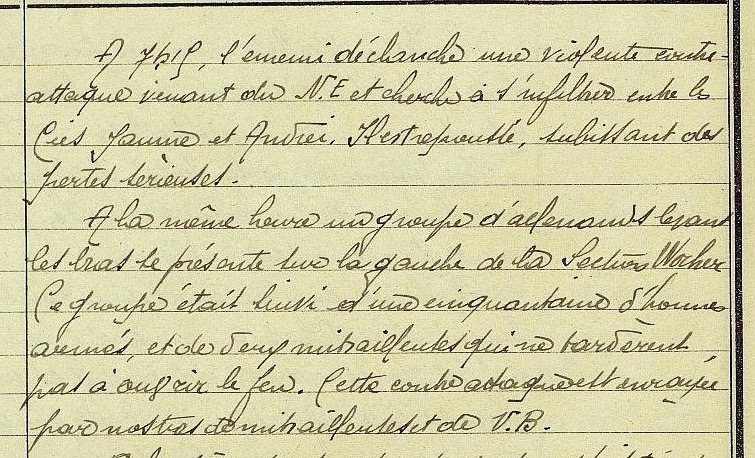 A 7h15, l'ennemi déclanche une violente contre-
attaque venant du N.E et cherche à s'infiltrer entre les
Cies Jaume et Andréi. Il est repoussé, subissant des
pertes sérieuses.
A la même heure un groupe d'allemands levant
les bras se présente sur la gauche de la Section
Ce groupe était suivi d'une cinquantaine d'hommes
armés, et de deux mitrailleuses qui ne tardèrent
pas à ouvrir le feu. Cette contre attaque est enrayée
par nos tirs de mitrailleuses et de V.B.